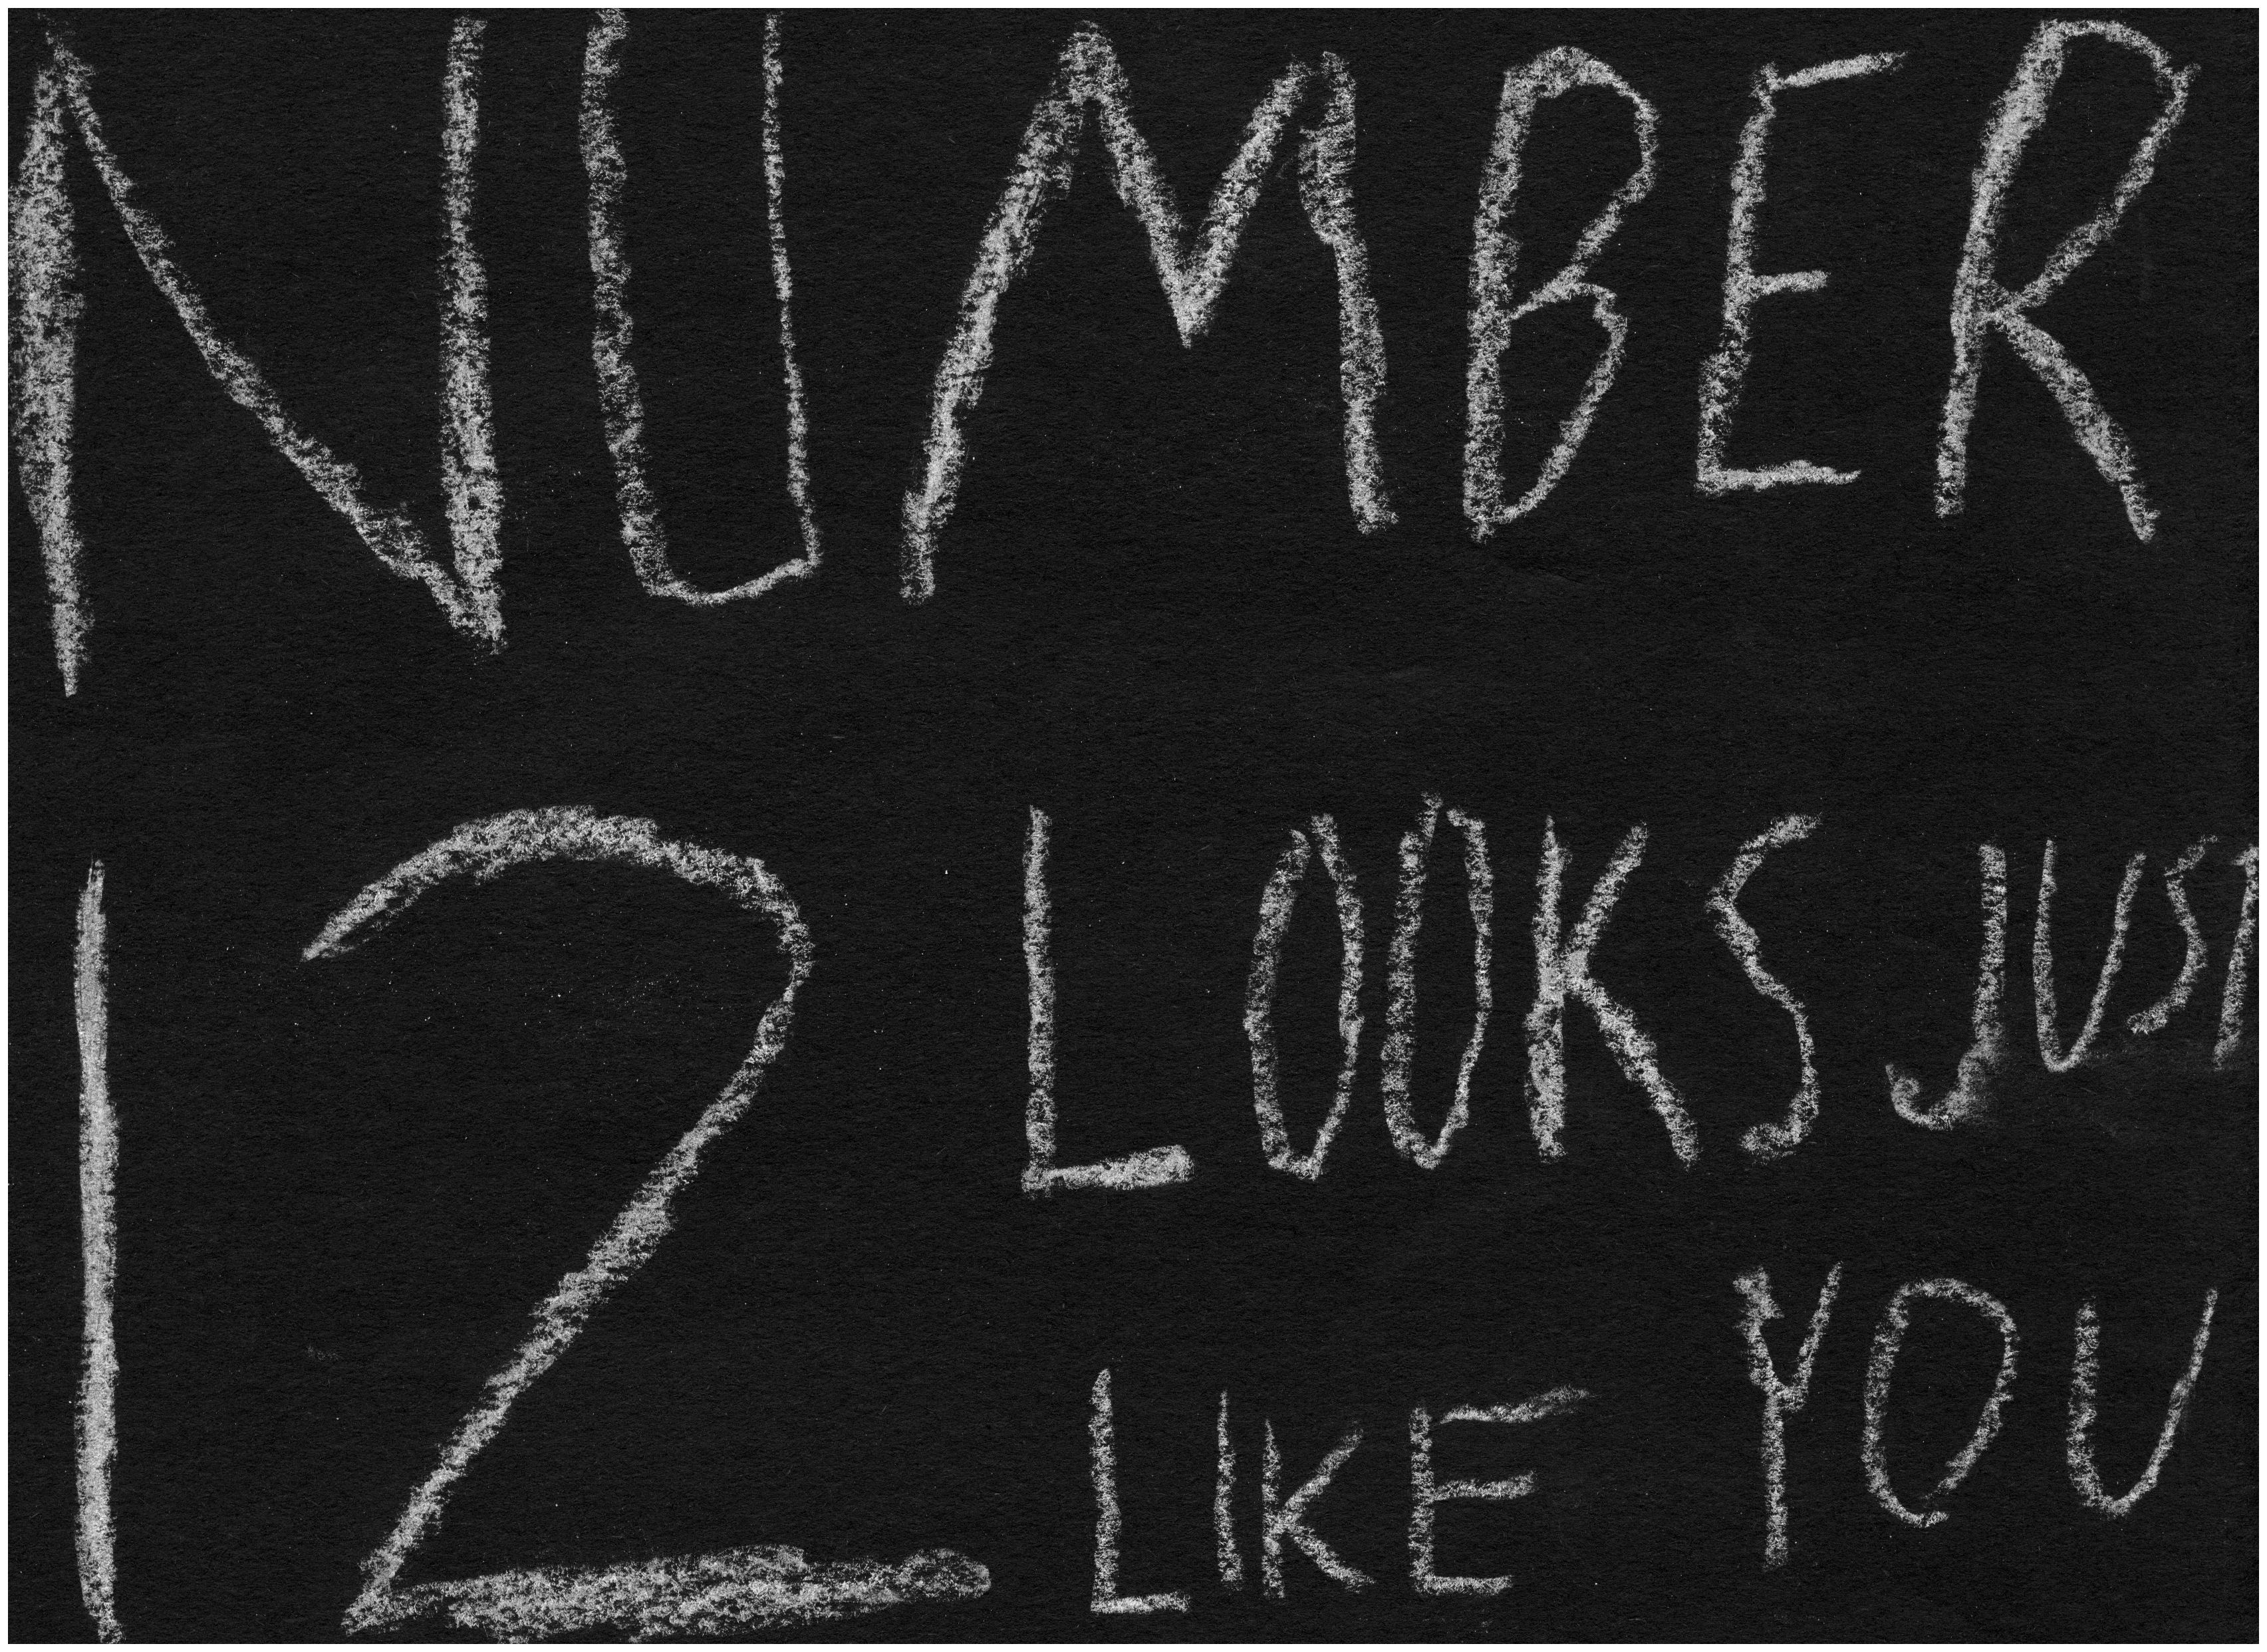 NUMBER
12 LOOKS JUST
LIKE YOU